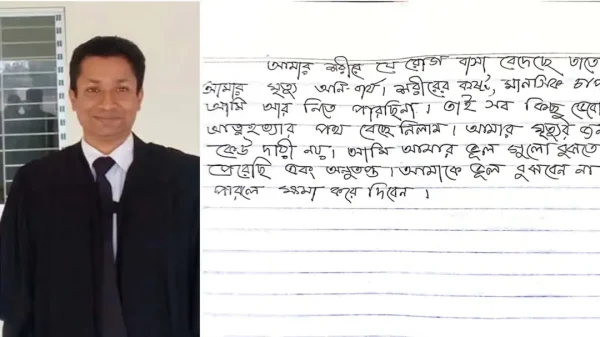 আমার শরীরে যে রোগ বাসা বেধেছে তাতে
আমার মৃত্যু অনিবার্য। শরীরের কষ্ট, মানসিক চাপ
আমি আর নিতে পারছিনা। তাই সব কিছু ভেবে
আত্মহত্যার পথ বেছে নিলাম। আমার মৃত্যুর জন্য
কেউ দায়ী নয়। আমি আমার ভুল গুলো বুঝতে
পেরেছি এবং অনুতপ্ত। আমাকে ভুল বুঝবেন না
পারলে ক্ষমা করে দিবেন।